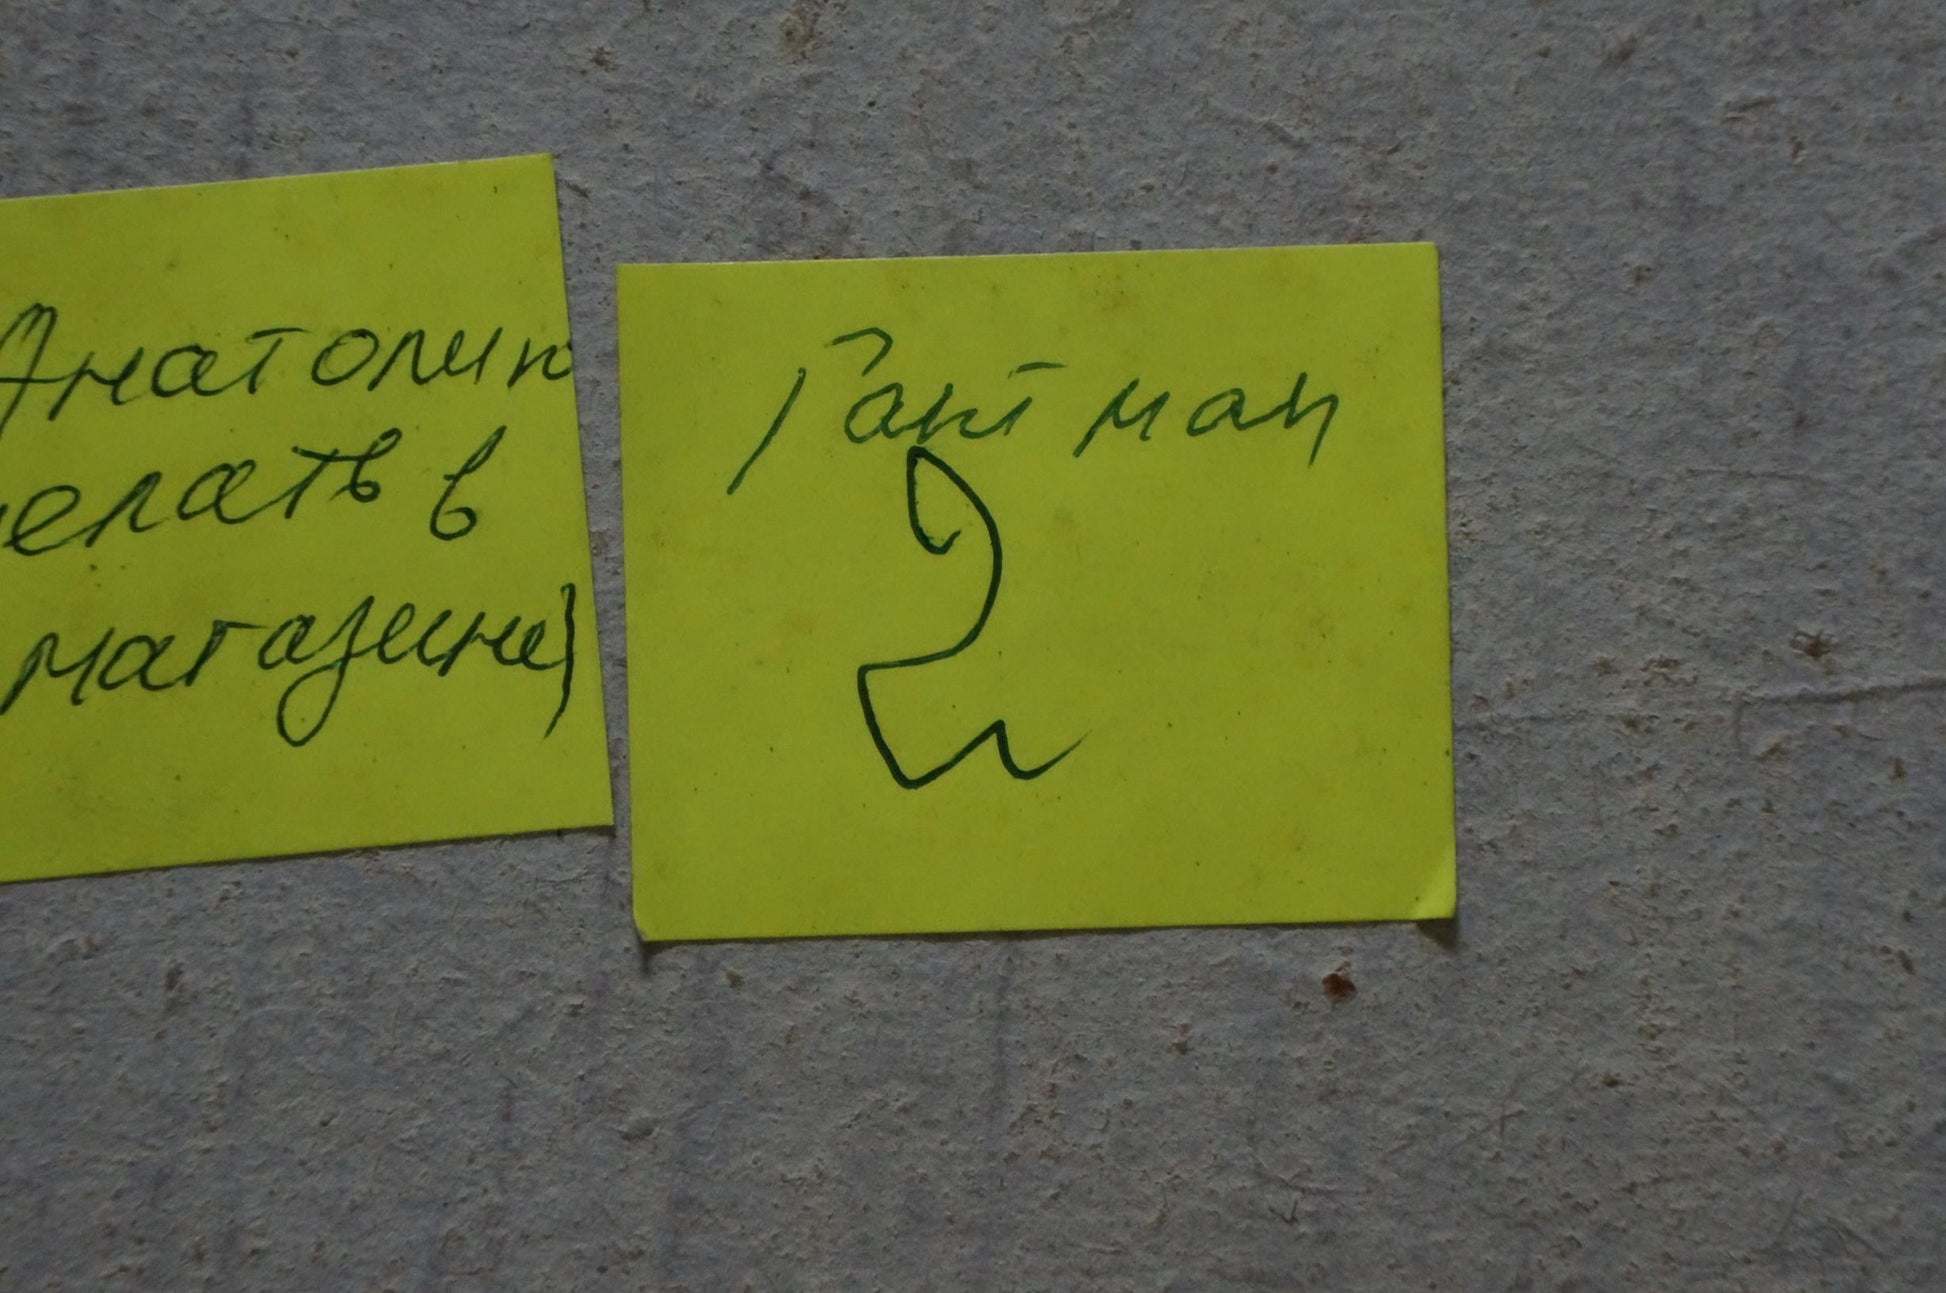 Анатолию
делать в
магазине)
Гантман